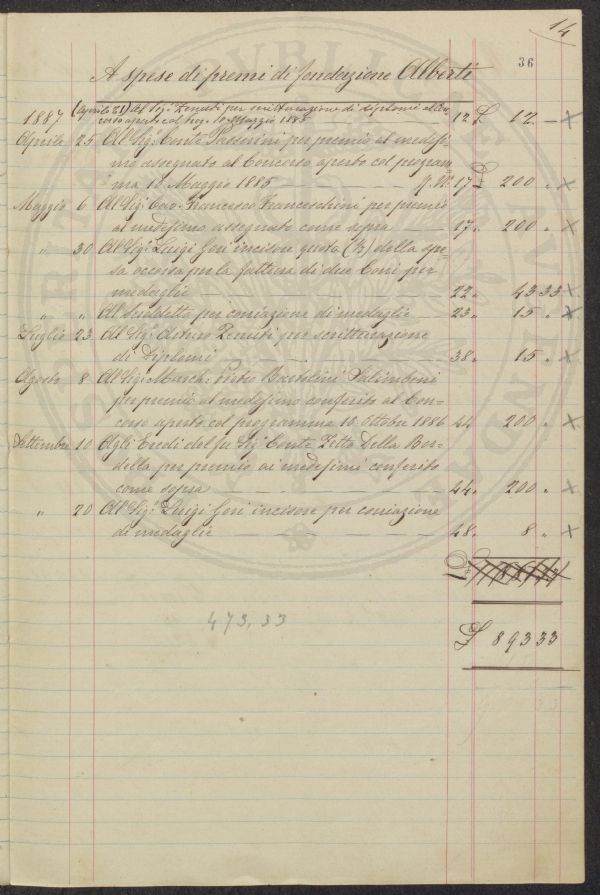 14
36
A spese di premi di fondazione Alberti
(Aprile 21) Al Sig.r Zenuti per scritturazione di diplomi al Con-
1887 corso aperto col prog. 10 Maggio 1885 — 12 £ 12 — X
Aprile 25 Al Sig.r Conte Passerini per premio al medesi-
mo assegnato al Concorso aperto col program-
ma 10 Maggio 1885 — 17 £ 200 " X
Maggio 6 Al Sig.r Cav. Francesco Franceschini per premio
al medesimo assegnato come sopra — 17 " 200 " X
" 30 Al Sig.r Luigi Gori incisore quota (½) della spe-
sa occorsa per la fattura di due Coni per
medaglie — 22 " 43 33 X
" " Al suddetto per coniazione di medaglie — 23 " 15 " X
Luglio 23 Al Sig.r Arturo Zenuti per scritturazione
di Diplomi — 38 " 15 " X
Agosto 8 Al Sig.r March. Pietro Bartolini Salimbeni
per premio al medesimo conferito al Con-
corso aperto col programma 10 Ottobre 1886 44 200 " X
Settembre 10 Agli Eredi del fu Sig.r Conte Zetto Della Bor-
della per premio ai medesimi conferito
come sopra — 44 " 200 " X
" 20 Al Sig.r Luigi Gori incisore per coniazione
di medaglie — 48 " 8 " X
473,33
£ 893 33